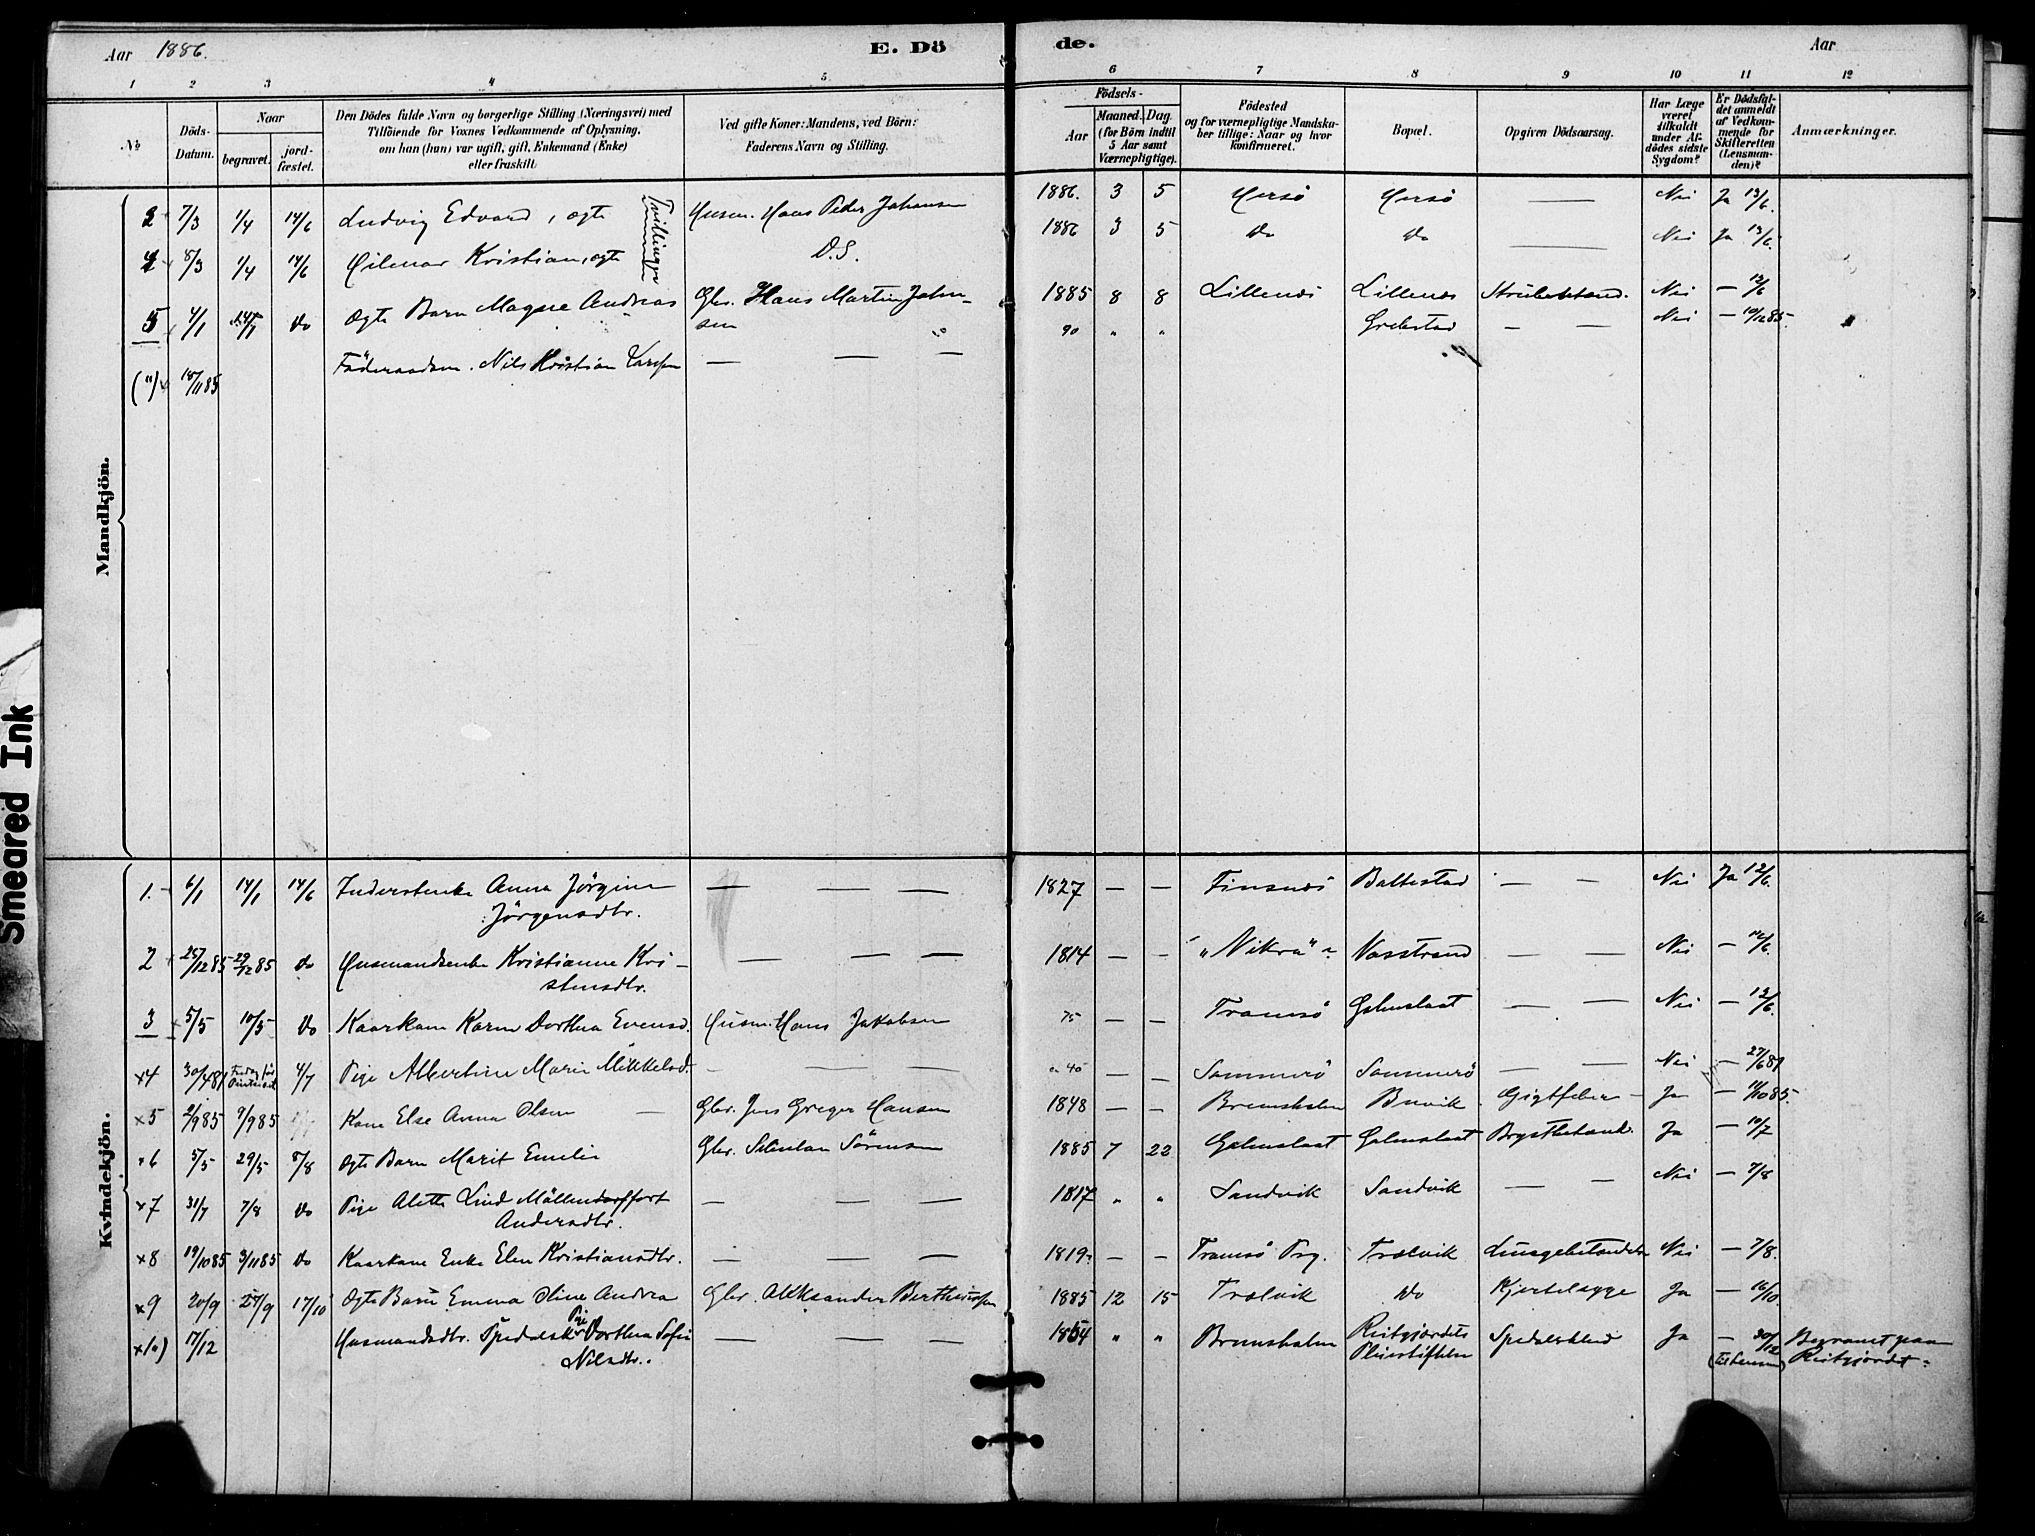 Aar 1886.
E. Dö
de.
Aar
1 2 3 4 5 6 7 8 9 10 11 12
№
Döds-
Datum.
Naar
begravet.
jord-
fæstet.
Den Dödes fulde Navn og borgerlige Stilling (Næringsvei) med
Tilföiende for Voxnes Vedkommende af Oplysning,
om han (hun) var ugift, gift, Enkemand (Enke)
eller fraskilt.
Ved gifte Koner: Mandens, ved Börn:
Faderens Navn og Stilling.
Födsels-
Aar
Maaned. Dag.
(for Börn indtil
5 Aar samt
Værnepligtige).
Födested
og for værnepligtige Mandska-
ber tillige: Naar og hvor
konfirmeret.
Bopæl.
Opgiven Dödsaarsag.
Har Læge
været
tilkaldt
under Af-
dödes sidste
Sygdom?
Er Dödsfal-
det anmeldt
af Vedkom-
mende for
Skifteretten
(Lensman-
den)?
Anmærkninger.
Mandkjön.
7/3 1/4 14/6 Ludvig Edvard, ægte Tvillinger Husm. Hans Peder Johansen 1886. 3 5 Hersö Hersö — Nei Ja 13/6.
8/3 1/4 14/6 Hilmar Kristian, ægte D.S. 1886 3 5 Do Do — Nei Ja 13/6
5 4/1 Do Ægte Barn Magne Andreas Gbr. Hans Martin Johan-
sen 1885 8 8 Lillenes Lillenes Strubehoste Nei — 12/6
(") 18/11 85 Föderaadsm. Nils Kristian Larsen — — — 90 " " Grebstad — — Nei — 10/12 85.
Kvindekjön.
1. 6/1 14/1 14/6 Inderstenke Anna Jörgine
Jörgensdtr. — — — 1827 — — Finsnes Baltestad — — Nei Ja 12/6.
2 25/12 85 29/12 85 Do Husmandsenke Kristianne Kri-
stensdtr. — — — 1814 — — "Vikra" Vasstrand — — Nei — 14/6.
3 5/5 10/5 Do Kaarkone Karen Dorthea Evensd. Husm. Hans Jakobsen 75 — — Tromsö — — Nei — 12/6.
×4 4/7 Pige Albertine Marie Mikkelsd. — — — 40 — — Sommerö Sommerö Nei — 27/6 81
×5 2/9 85 9/9 85 Kone Else Anna Olsen — Gbr. Jens Greger Hansen 1848 — — Bremsholm Buvik Gigtfeber — Ja
×6 5/5 29/5 8/8 Ægte Barn Marit Emilie Gbr. Sörensen 1885 7 22 Brystbetænd. Ja — 10/7
×7 31/7 7/8 Do Pige Alette Lind Möllendorff
Andersdtr. — — — 1817 " " Sandvik Sandvik — — Nei — 7/8
×8 19/10 85 3/11 85 Do Kaarkone Enke Elen Kristiansdtr. — — — 1819 — — Tromsö Prg. Trælvik Lungebetændelse Nei — 7/8.
×9 20/9 27/9 17/10 Ægte Barn Emma Oline Andrea Gbr. Aleksander Bertheussen 1885 12 15 Trælvik Do Kjertelsyge Ja — 16/10.
×10) 17/12 Husmandsdtr. Spedalsk Pige Dorthea Sofie
Nilsdtr. — — — 1854 " " Bremsholm Reitgjerdets
Pleiestiftelse Spedalskhed Ja — 30/12 Begravet paa
Reitgjerdet.
Smeared Ink